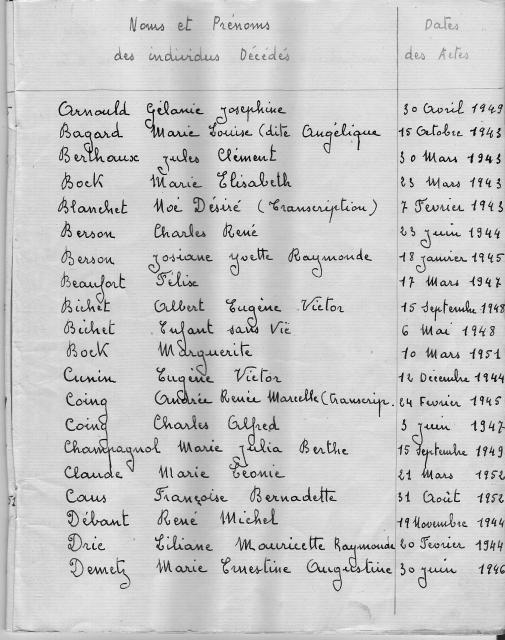 Noms et Prénoms Dates
des individus Décédés des Actes
Arnould Gélanie Josephine 30 Avril 1949
Bagard Marie Louise (dite Angélique 15 Octobre 1943
Berthaux Jules Clément 30 Mars 1943
Bock Marie Elisabeth 23 Mars 1943
Blanchet Noé Désiré (Transcription) 7 Fevrier 1943
Berson Charles René 23 Juin 1944
Berson Josiane Yvette Raymonde 18 Janvier 1945
Beaufort Félix 17 Mars 1947
Bichet Albert Eugène Victor 15 Septembre 1948
Bichet Enfant sans Vie 6 Mai 1948
Bock Marguerite 10 Mars 1951
Cunin Eugène Victor 12 Décembre 1944
Coing Andrée Renée Marcelle (Transcrip. 24 Fevrier 1945
Coing Charles Alfred 3 Juin 1947
Champagnol Marie Julia Berthe 15 Septembre 1949
Claude Marie Léonie 21 Mars 1952
Caus Françoise Bernadette 31 Août 1952
Débant René Michel 19 Novembre 1944
Drie Liliane Mauricette Raymonde 20 Fevrier 1944
Demetz Marie Ernestine Augustine 30 Juin 1946